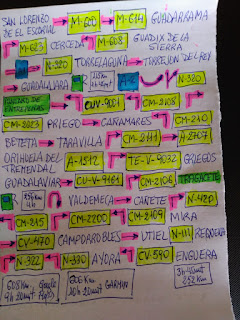 SAN LORENZO DE EL ESCORIAL → M-600 → M-614 GUADARRAMA
M-623 CERCEDA M-608 GUADIX DE LA SIERRA
N-320 TORRELAGUNA → TORREJON DEL REY
GUADALAJARA N-320
CUV-9001 CM-2108
CM-2023 PRIEGO → CAÑAMARES CM-210
BETETA → TARAVILLA CM-2111 A-2707
ORIHUELA DEL TREMENDAL A-1512 TE-V-9032 GRIEGOS
GUADALAVIAR CU-V-9161 CM-2106 TRAGACETE
VALDEMECA → CAÑETE N-420
CM-215 CM-2200 CM-2109 MIRA
CV-470 CAMPORROBLES → UTIEL N-III REQUENA
N-322 N-330 AYORA CV-590 ENGUERA
608Km Google Maps
606 Km GARMIN
252 Km